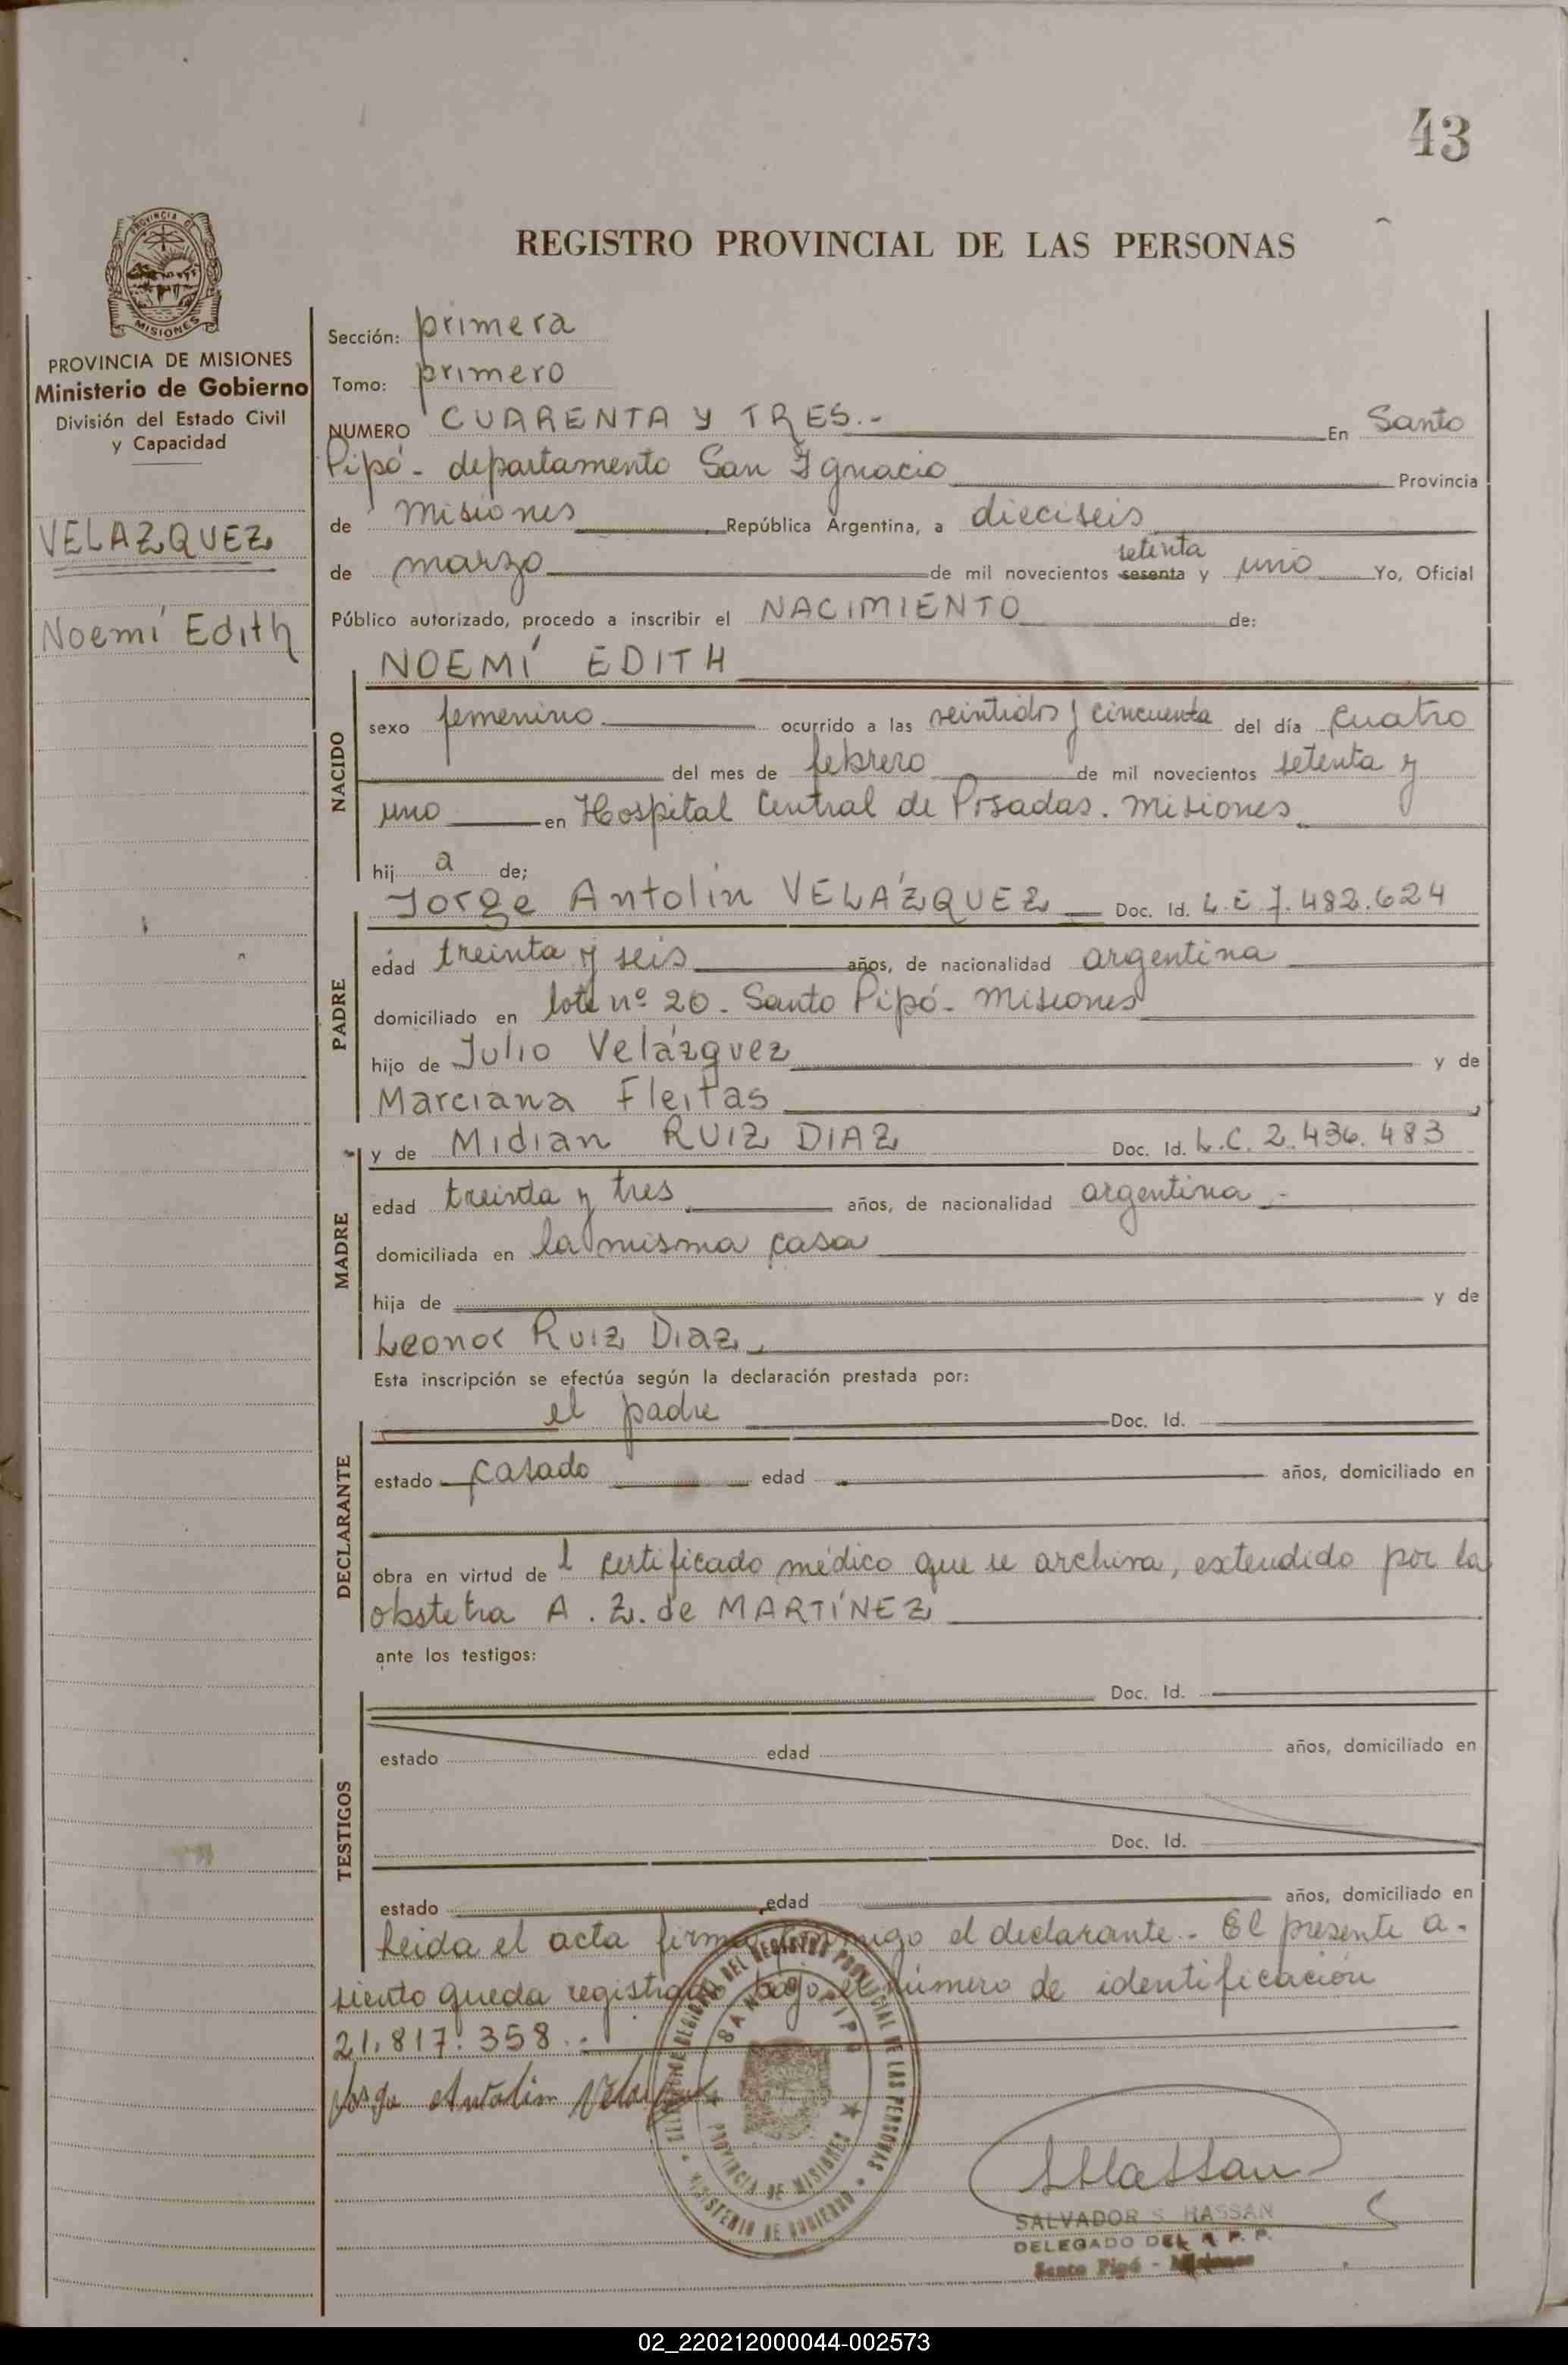 43
REGISTRO PROVINCIAL DE LAS PERSONAS
PROVINCIA DE MISIONES
PROVINCIA DE MISIONES
Ministerio de Gobierno
División del Estado Civil
y Capacidad
VELAZQUEZ
Noemí Edith
Sección: primera
Tomo: primero
NUMERO CUARENTA Y TRES.- En Santo
Pipó - departamento San Ignacio Provincia
de Misiones República Argentina, a dieciseis
setenta
de marzo de mil novecientos sesenta y uno Yo, Oficial
Público autorizado, procedo a inscribir el NACIMIENTO de:
NOEMÍ EDITH
NACIDO
sexo femenino ocurrido a las veintidos y cincuenta del día cuatro
del mes de febrero de mil novecientos setenta y
uno en Hospital Central de Posadas. Misiones
hij a de;
PADRE
Jorge Antolín VELÁZQUEZ Doc. Id. L.E 7.482.624
edad treinta y seis años, de nacionalidad argentina
domiciliado en lote nº 20 - Santo Pipó - Misiones
hijo de Julio Velázquez y de
Marciana Fleitas
MADRE
y de Midian RUIZ DIAZ Doc. Id. L.C. 2.436.483
edad treinta y tres años, de nacionalidad argentina -
domiciliada en la misma casa
hija de y de
Leonor Ruiz Diaz
Esta inscripción se efectúa según la declaración prestada por:
DECLARANTE
el padre Doc. Id.
estado casado edad años, domiciliado en
obra en virtud de l certificado médico que se archiva, extendido por la
obstetra A. Z. de MARTÍNEZ
ante los testigos:
TESTIGOS
Doc. Id.
estado edad años, domiciliado en
Doc. Id.
estado edad años, domiciliado en
Leida el acta firma conmigo el declarante.- El presente a-
siento queda registrado bajo el número de identificación
21.817.358.-
Jorge Antolin Velazquez
DEL REGISTRO PROVINCIAL DE LAS PERSONAS
MINISTERIO DE GOBIERNO
SANTO PIPO
PROVINCIA DE MISIONES
SHassan
SALVADOR S. HASSAN
DELEGADO DEL R. P. P.
Santo Pipó - Misiones
02_220212000044-002573